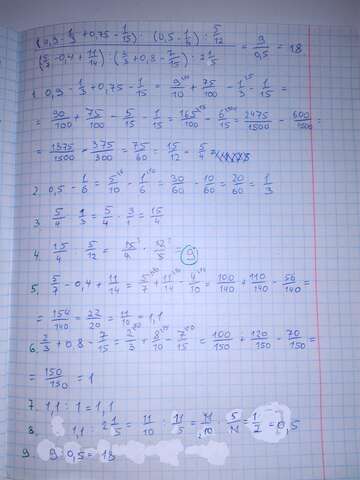 (0,9 - 1/3 + 0,75 - 1/15) : (0,5 - 1/6) : 5/12
(5/7 - 0,4 + 11/14) : (2/3 + 0,8 - 7/15) : 2 1/5 = 9/0,5 = 18
1. 0,9 - 1/3 + 0,75 - 1/15 = 9/10 + 75/100 - 1/3 - 1/15 =
= 90/100 + 75/100 - 5/15 - 1/15 = 165/100 - 6/15 = 2475/1500 - 600/1500 =
= 1875/1500 = 375/300 = 75/60 = 15/12 = 5/4
2. 0,5 - 1/6 = 5/10 - 1/6 = 30/60 - 10/60 = 20/60 = 1/3
3. 5/4 : 1/3 = 5/4 · 3/1 = 15/4
4. 15/4 : 5/12 = 15/4 · 12/5 = 9
5. 5/7 - 0,4 + 11/14 = 5/7 + 11/14 - 4/10 = 100/140 + 110/140 - 56/140 =
= 154/140 = 22/20 = 11/10 = 1,1
6. 2/3 + 0,8 - 7/15 = 2/3 + 8/10 - 7/15 = 100/150 + 120/150 - 70/150 =
= 150/150 = 1
7. 1,1 : 1 = 1,1
8. 1,1 : 2 1/5 = 11/10 : 11/5 = 11/10 · 5/11 = 1/2 = 0,5
9. 9 : 0,5 = 18